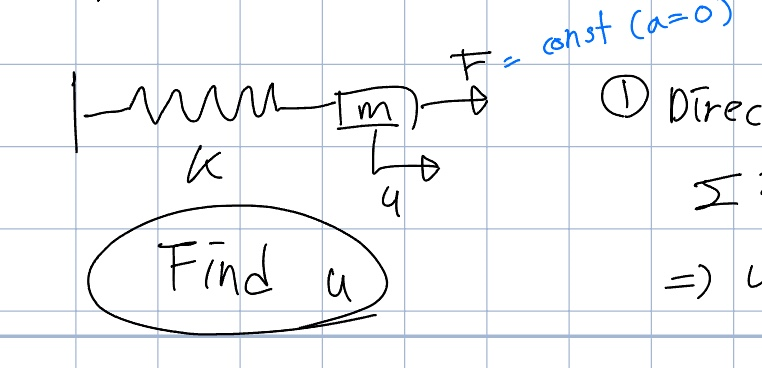 F = const (a=0)
m
K
u
Find u
① Direc
Σ
=> u